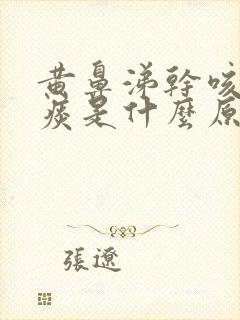 黄鼻涕幹咳
痰是什麼原
張遼